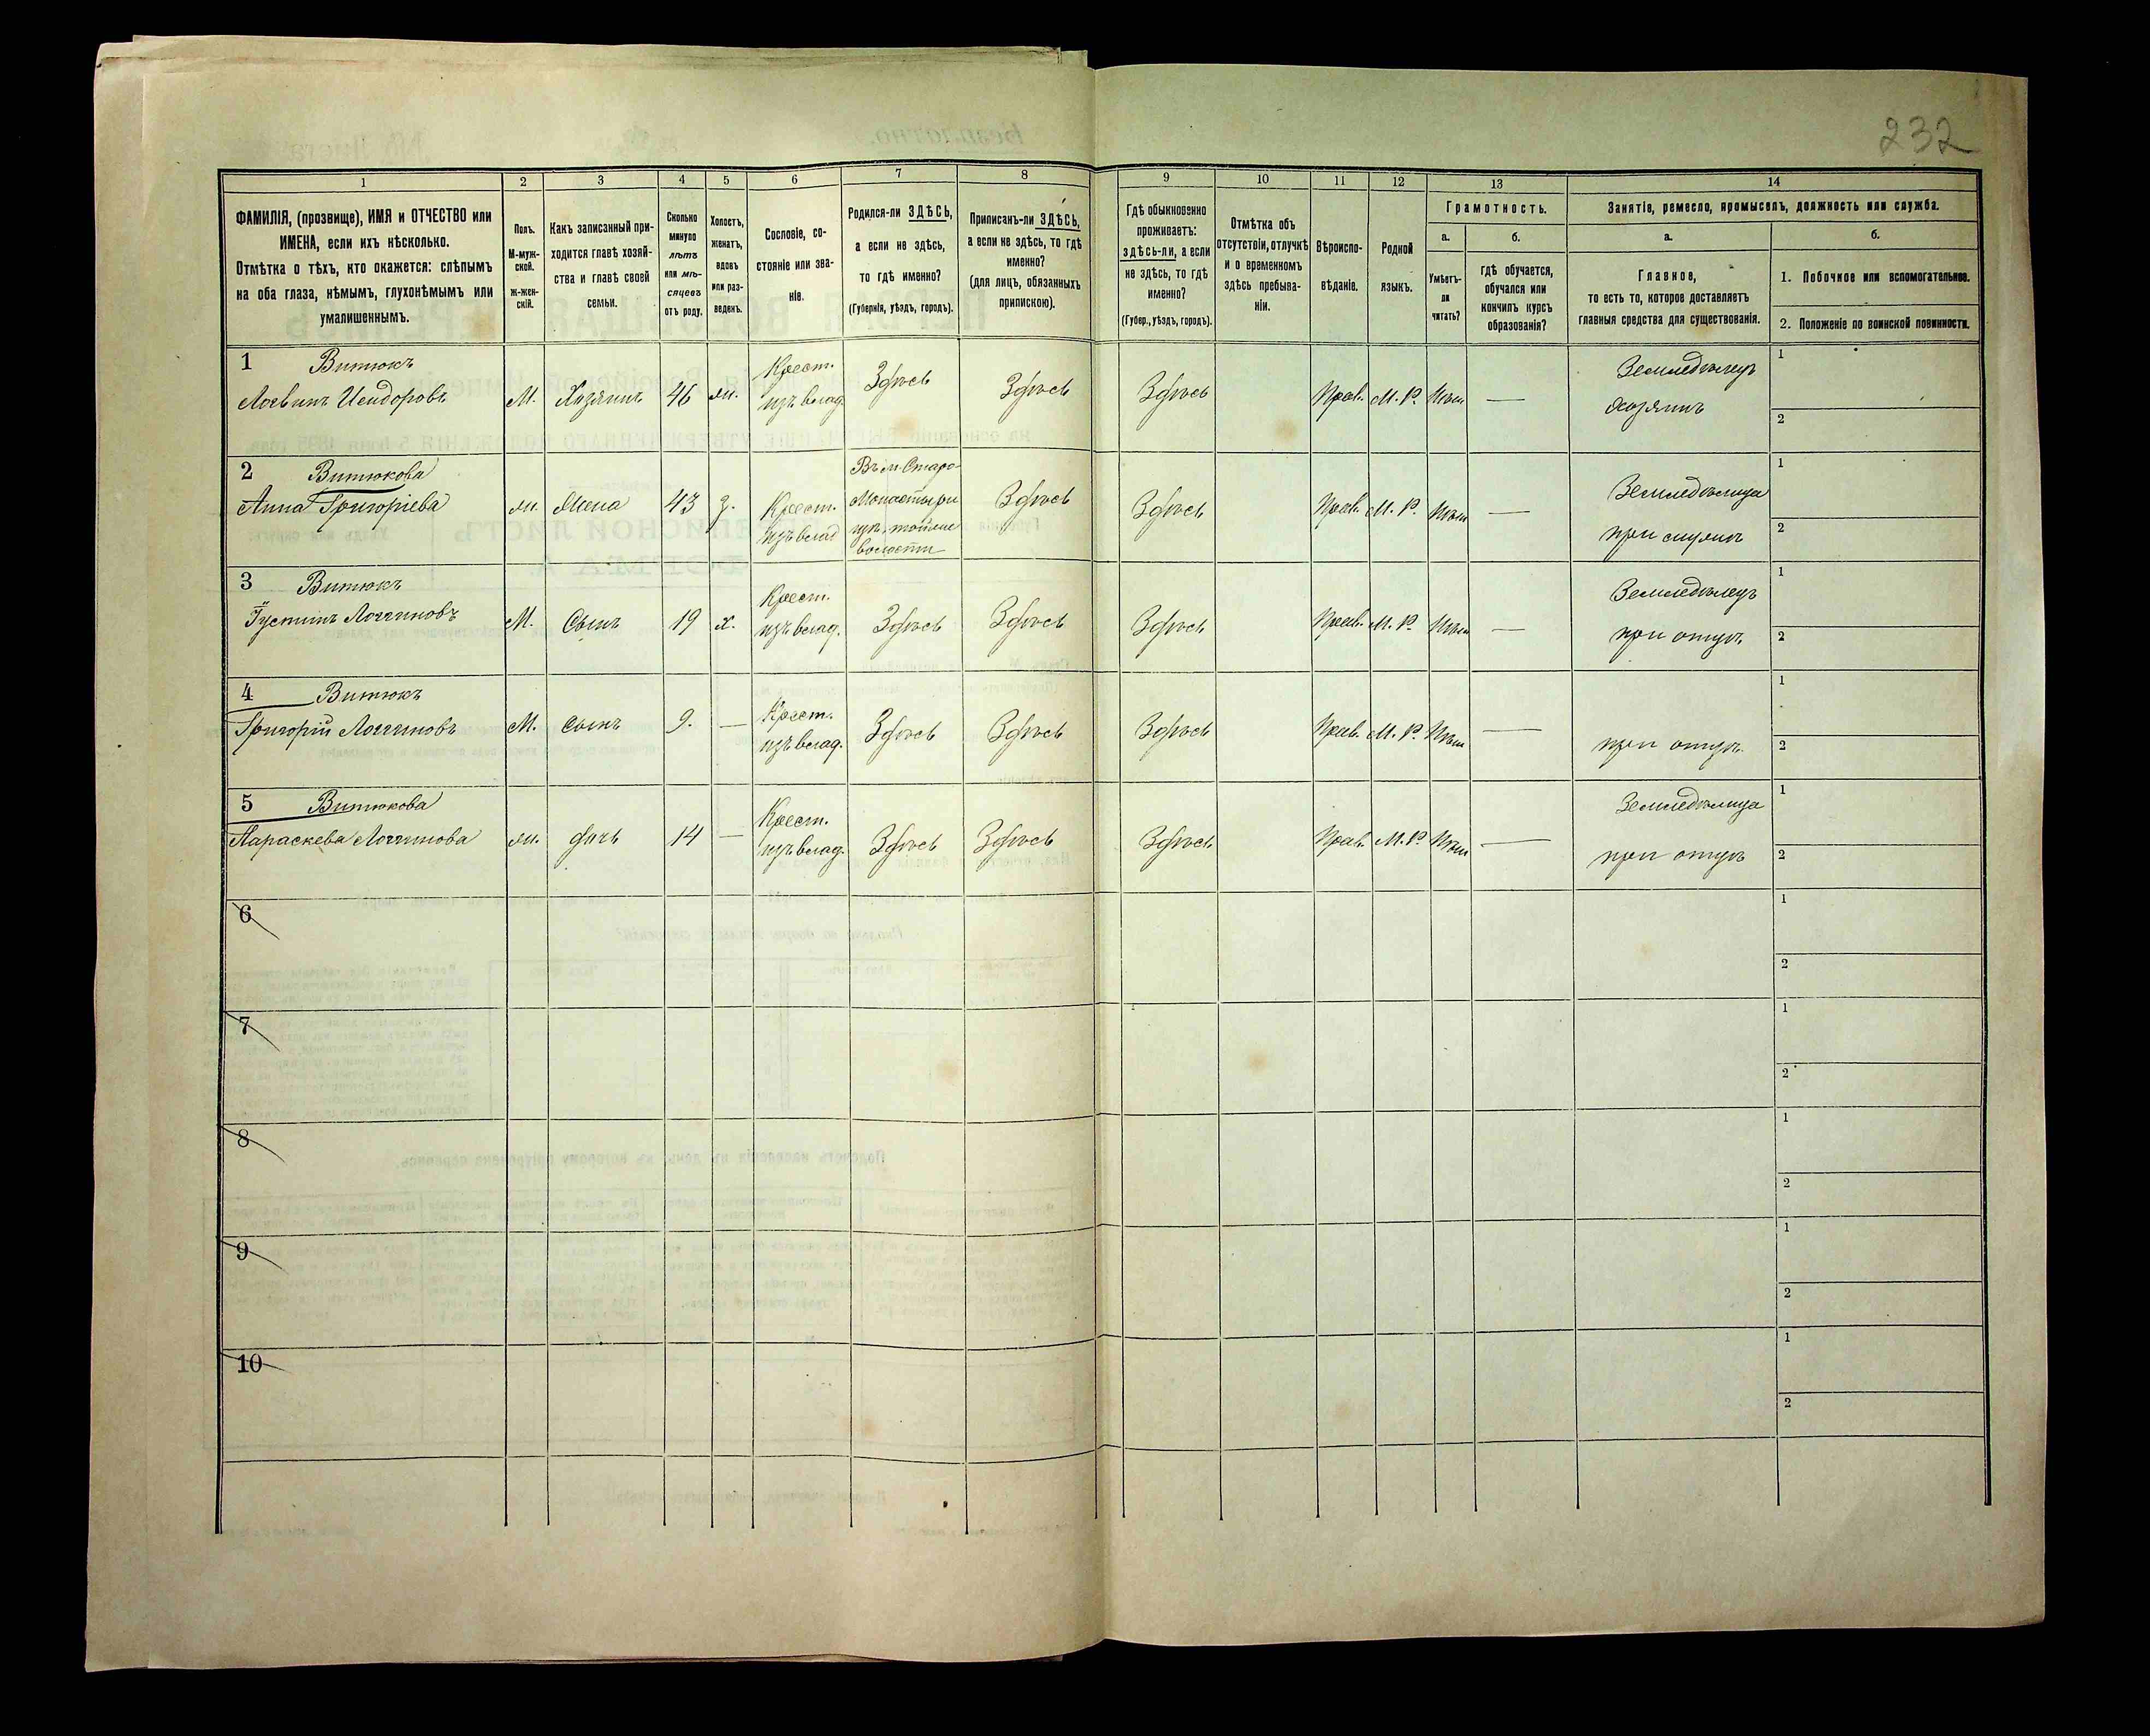 232
1
2
3
4
5
6
7
8
9
10
11
12
13
14
ФАМИЛІЯ, (прозвище), ИМЯ и ОТЧЕСТВО или
ИМЕНА, если ихъ нѣсколько.
Отмѣтка о тѣхъ, кто окажется: слѣпымъ
на оба глаза, нѣмымъ, глухонѣмымъ или
умалишеннымъ.
Полъ.
М-муж-
ской.
ж-жен-
скій.
Какъ записанный при-
ходится главѣ хозяй-
ства и главѣ своей
семьи.
Сколько
минуло
лѣтъ
или мѣ-
сяцевъ
отъ роду.
Холостъ,
женатъ,
вдовъ
или раз-
веденъ.
Сословіе, со-
стояніе или зва-
ніе.
Родился-ли ЗДѢСЬ,
а если не здѣсь,
то гдѣ именно?
(Губернія, уѣздъ, городъ).
Приписанъ-ли ЗДѢСЬ,
а если не здѣсь, то гдѣ
именно?
(для лицъ, обязанныхъ
припискою).
Гдѣ обыкновенно
проживаетъ:
здѣсь-ли, а если
не здѣсь, то гдѣ
именно?
(Губер., уѣздъ, городъ).
Отмѣтка объ
отсутствіи, отлучкѣ
и о временномъ
здѣсь пребыва-
ніи.
Вѣроиспо-
вѣданіе.
Родной
языкъ.
Грамотность.
а.
б.
Умѣетъ-
ли
читать?
гдѣ обучается,
обучался или
кончилъ курсъ
образованія?
Занятіе, ремесло, промыселъ, должность или служба.
а.
б.
Главное,
то есть то, которое доставляетъ
главныя средства для существованія.
1. Побочное или вспомогательное.
2. Положеніе по воинской повинности.
1 Витюкъ
Логвинъ Исидоровъ
М.
Хозяинъ
46
ж.
Крест.
изъ влад.
Здѣсь
Здѣсь
Здѣсь
Прав.
М. Р.
Нѣт
—
Земледѣлецъ
хозяинъ
1
2
2 Витюкова
Анна Григоріева
ж.
Жена
43
з.
Крест.
изъ влад
Въ м. Старо-
Монастыри
волости
Здѣсь
Здѣсь
Прав.
М. Р.
Нѣт
—
Земледѣлица
при мужѣ
1
2
3 Витюкъ
Густинъ Логгиновъ
М.
Сынъ
19
х.
Крест.
изъ влад.
Здѣсь
Здѣсь
Здѣсь
Прав.
М. Р.
Нѣт
—
Земледѣлецъ
при отцѣ
1
2
4 Витюкъ
Григорій Логгиновъ
М.
сынъ
9.
—
Крест.
изъ влад.
Здѣсь
Здѣсь
Здѣсь
Прав.
М. Р.
Нѣт
—
при отцѣ
1
2
5 Витюкова
Параскева Логгинова
ж.
дочь
14
—
Крест.
изъ влад.
Здѣсь
Здѣсь
Здѣсь
Прав.
М. Р.
Нѣт
—
Земледѣлица
при отцѣ
1
2
6
1
2
7
1
2
8
1
2
9
1
2
10
1
2